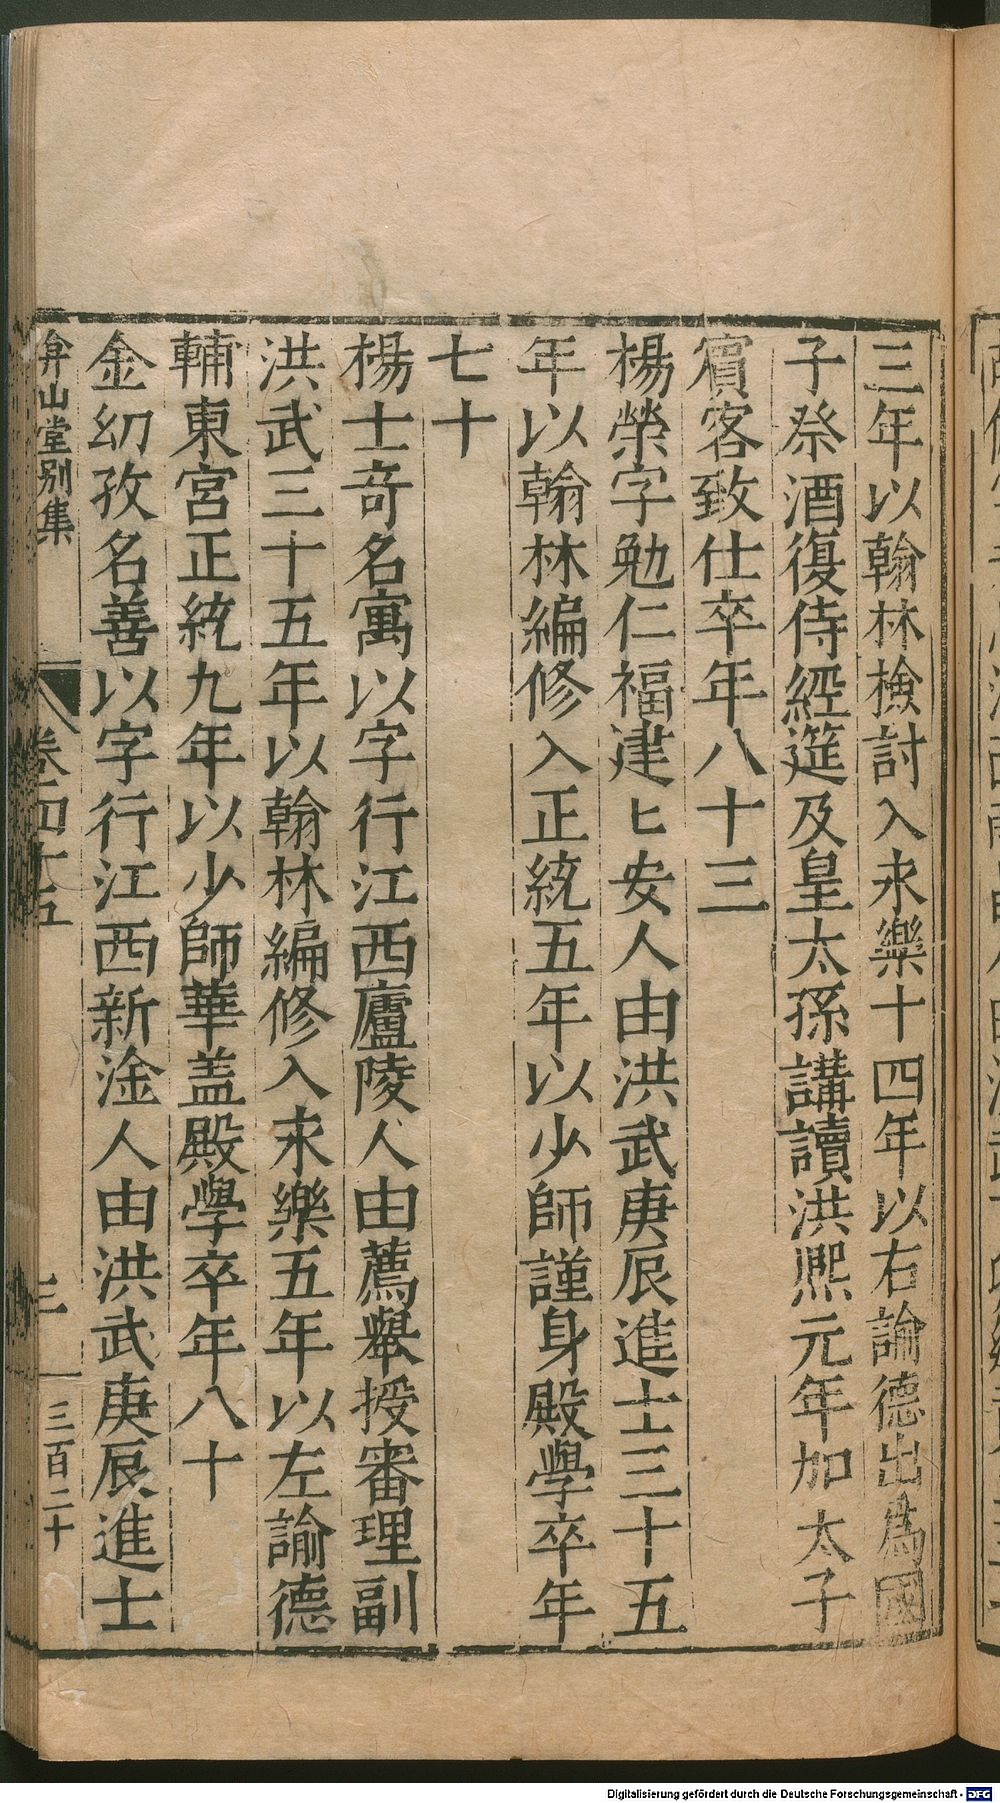 三年以翰林檢討入永樂十四年以右諭德出為國
子祭酒復侍經筵及皇太孫講讀洪熙元年加太子
賓客致仕卒年八十三
楊榮字勉仁福建匕安人由洪武庚辰進士三十五
年以翰林編修入正統五年以少師謹身殿學卒年
七十
楊士奇名寓以字行江西廬陵人由薦舉授審理副
洪武三十五年以翰林編修入永樂五年以左諭德
輔東宮正統九年以少師華盖殿學卒年八十
金幼孜名善以字行江西新淦人由洪武庚辰進士
弇山堂別集
卷四十五
三
三百二十
Digitalisierung gefördert durch die Deutsche Forschungsgemeinschaft - DFG